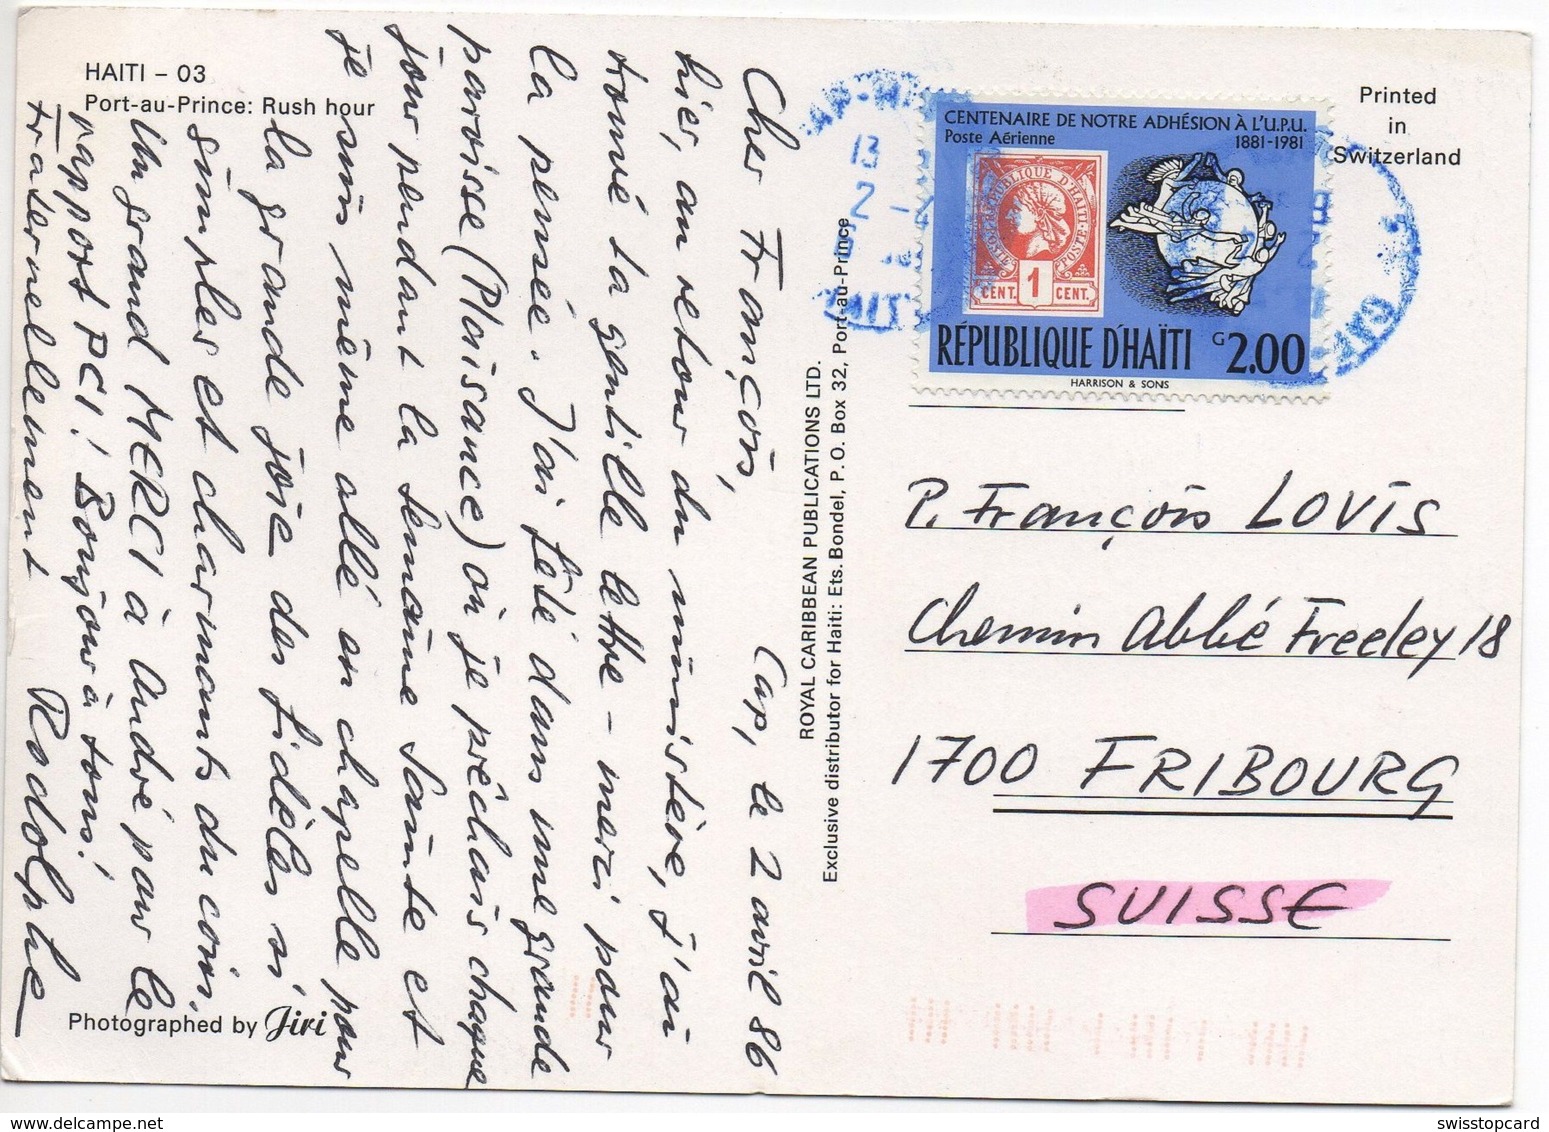 HAITI – 03
Port-au-Prince: Rush hour
Cap, le 2 avril 86
Cher François,
hier, au retour du ministère, j'ai
trouvé ta gentille lettre - merci pour
la pensée. J'ai fêté dans une grande
paroisse (Plaisance) où je prêchais chaque
jour pendant la Semaine Sainte et
je suis même allé en chapelle pour
la grande joie des fidèles si
simples et charmants du coin.
Un grand MERCI à André pour le
rapport PCI! Bonjour à tous!
Fraternellement Rodolphe
Photographed by Jiri
ROYAL CARIBBEAN PUBLICATIONS LTD.
Exclusive distributor for Haiti: Ets. Bondel, P. O. Box 32, Port-au-Prince
Printed
in
Switzerland
CENTENAIRE DE NOTRE ADHÉSION À L'U.P.U.
Poste Aérienne 1881-1981
RÉPUBLIQUE D'HAITI
POSTE
POSTE
CENT. 1 CENT.
RÉPUBLIQUE D'HAÏTI G2.00
HARRISON & SONS
13
2
P. François LOVIS
Chemin Abbé Freeley 18
1700 FRIBOURG
SUISSE
swisstopcard